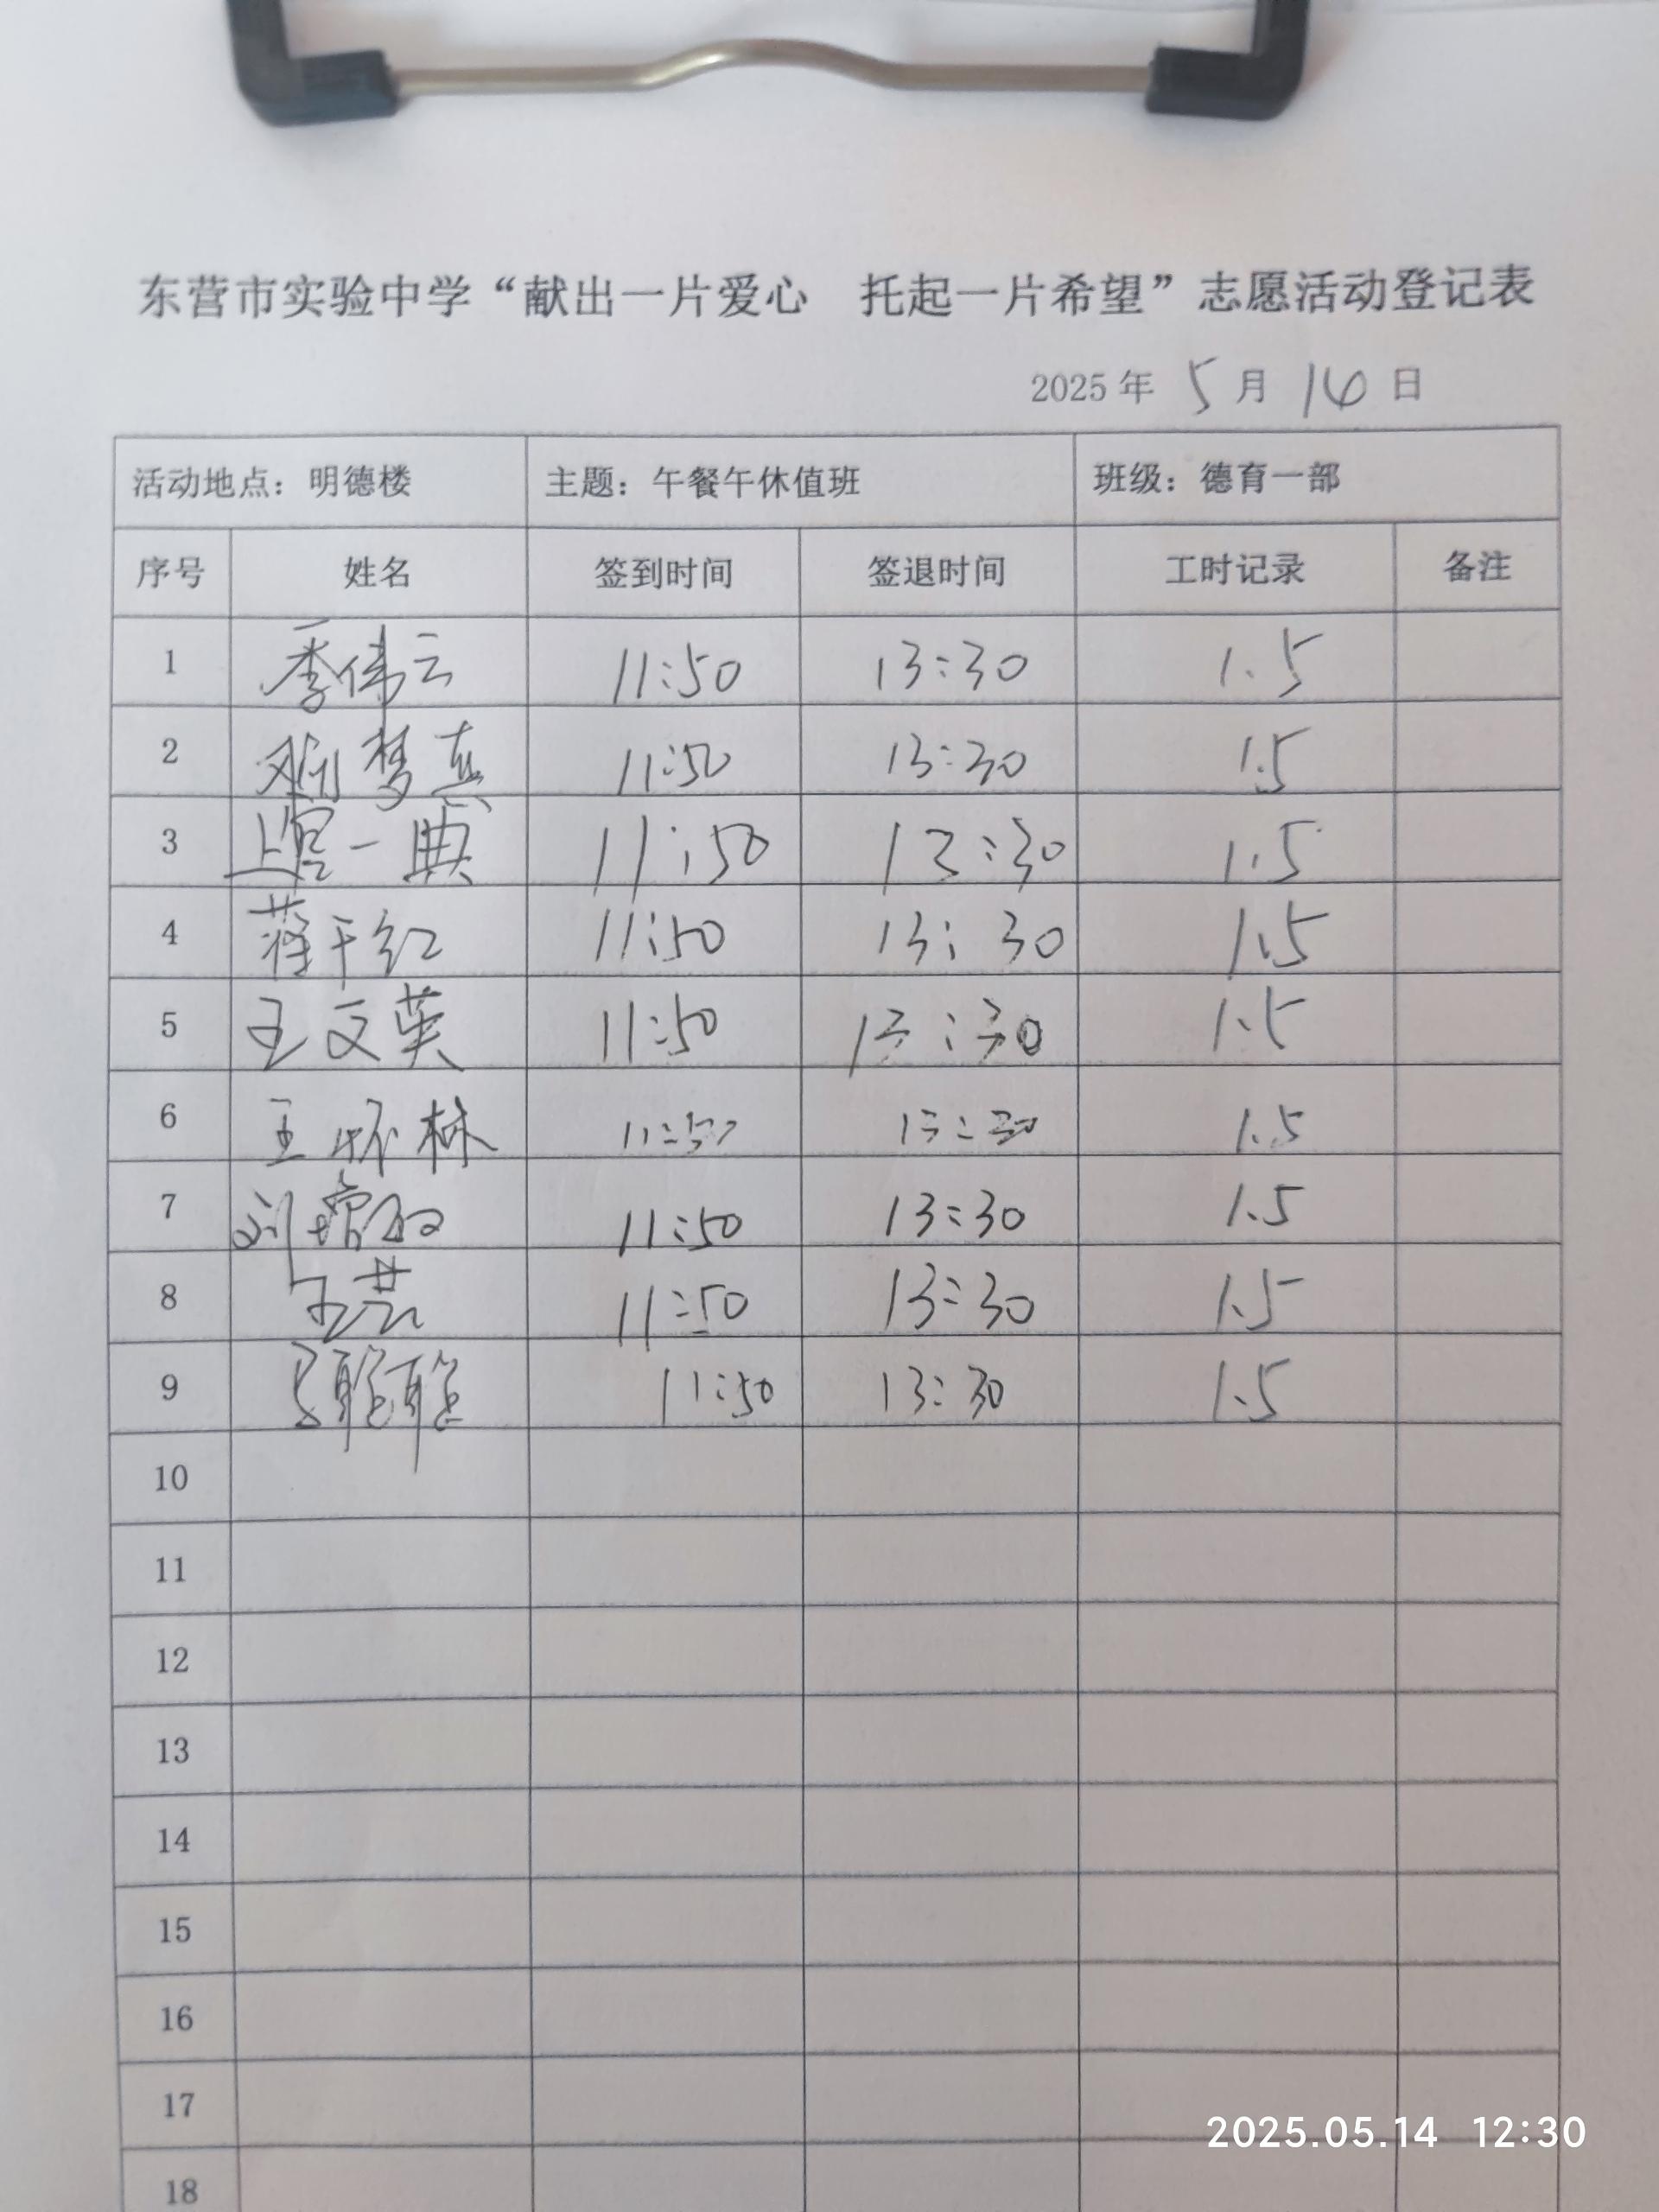 东营市实验中学“献出一片爱心 托起一片希望”志愿活动登记表
2025年 5月 14日
活动地点：明德楼 主题：午餐午休值班 班级：德育一部
序号 姓名 签到时间 签退时间 工时记录 备注
1 季伟云 11:50 13:30 1.5
2 刘梦真 11:50 13:30 1.5
3 上官一典 11:50 13:30 1.5
4 蒋于红 11:50 13:30 1.5
5 王文英 11:50 13:30 1.5
6 王怀林 11:50 13:30 1.5
7 刘增 11:50 13:30 1.5
8 王芸 11:50 13:30 1.5
9 聪聪 11:50 13:30 1.5
10
11
12
13
14
15
16
17
18
2025.05.14 12:30